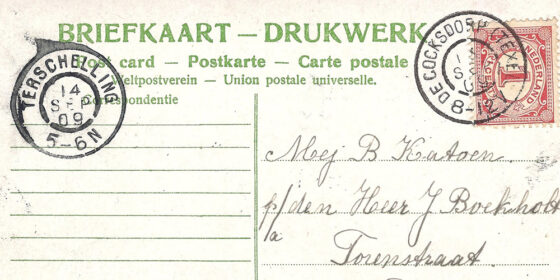 BRIEFKAART — DRUKWERK
Post card — Postkarte — Carte postale
Weltpostverein — Union postale universelle.
Correspondentie
TERSCHELLING
14
SEP
09
5-6N
DE COCKSDORP (TEXEL
SEP
09
8-12
NEDERLAND
1
Mej B Katoen.
p/den Heer J Boekholt
/a
Torenstraat.